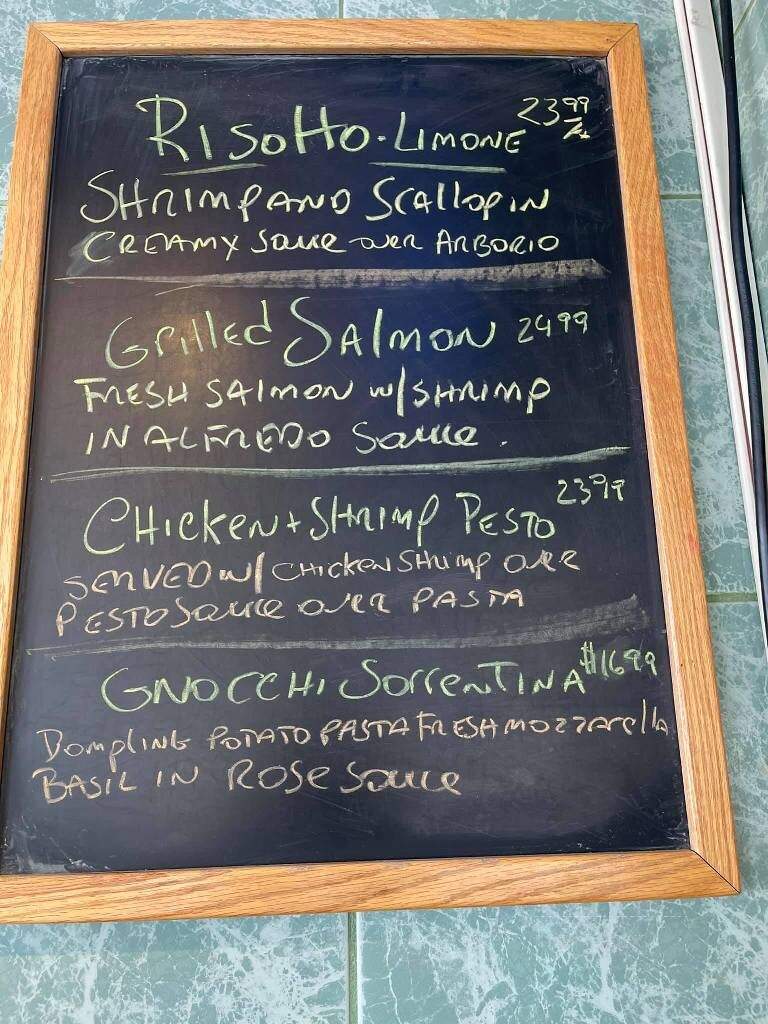 RISOTTO - LIMONE 23 99
SHRIMP AND SCALLOP IN
CREAMY SAUCE OVER ARBORIO
Grilled SAlmON 24 99
FRESH SAlMON w/ SHRIMP
IN ALFREDO SAUCE.
CHICKEN + SHRIMP PESTO 23 99
SERVED w/ CHICKEN SHRIMP OVER
PESTO SAUCE OVER PASTA
GNOCCHI SORRENTINA $16 99
DOMPLING POTATO PASTA FRESH MOZZARELLA
BASIL IN ROSE SAUCE